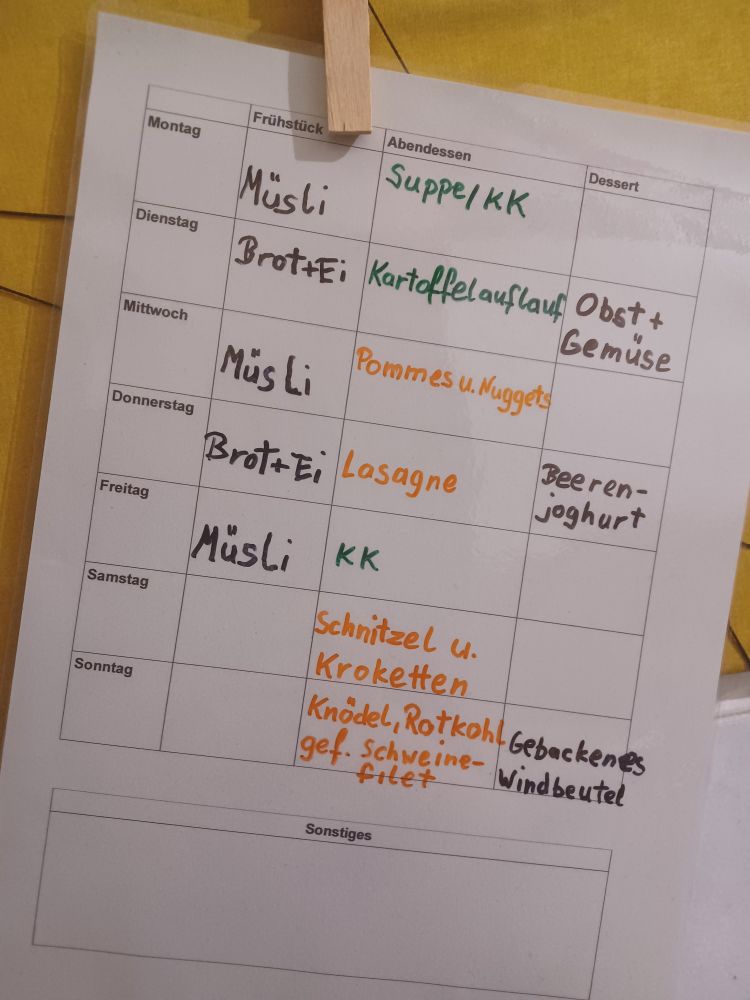 Frühstück Abendessen Dessert
Montag Müsli Suppe/KK
Dienstag Brot+Ei Kartoffelauflauf Obst+
Gemüse
Mittwoch Müsli Pommes u. Nuggets
Donnerstag Brot+Ei Lasagne Beeren-
joghurt
Freitag Müsli KK
Samstag Schnitzel u.
Kroketten
Sonntag Knödel, Rotkohl Gebackenes
gef. Schweine- Windbeutel
filet
Sonstiges